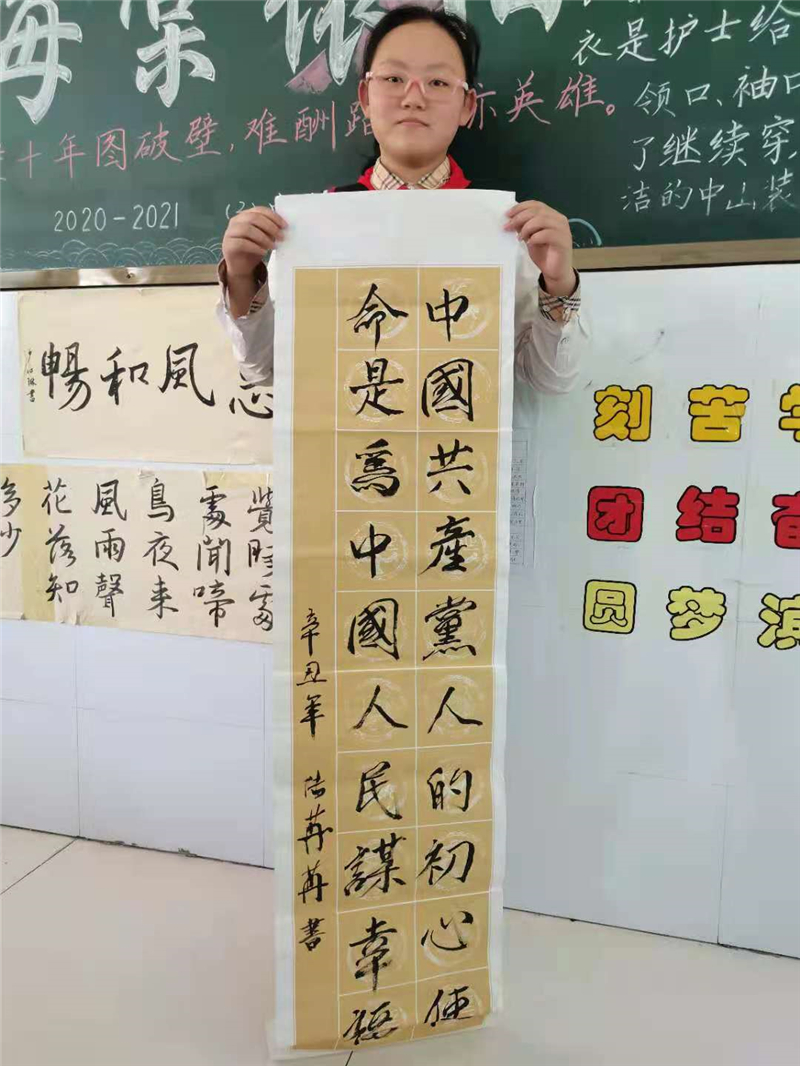 海棠依
十年图破壁，难酬蹈
亦英雄。
2020-2021
衣是护士给
领口、袖口
了继续穿，
洁的中山装
中國共產黨人的初心使
命是爲中國人民謀幸福
辛丑年 陆苒苒書
風和暢
處聞啼
鳥夜来
風雨聲
花落知
多少
刻苦
团结
圆梦